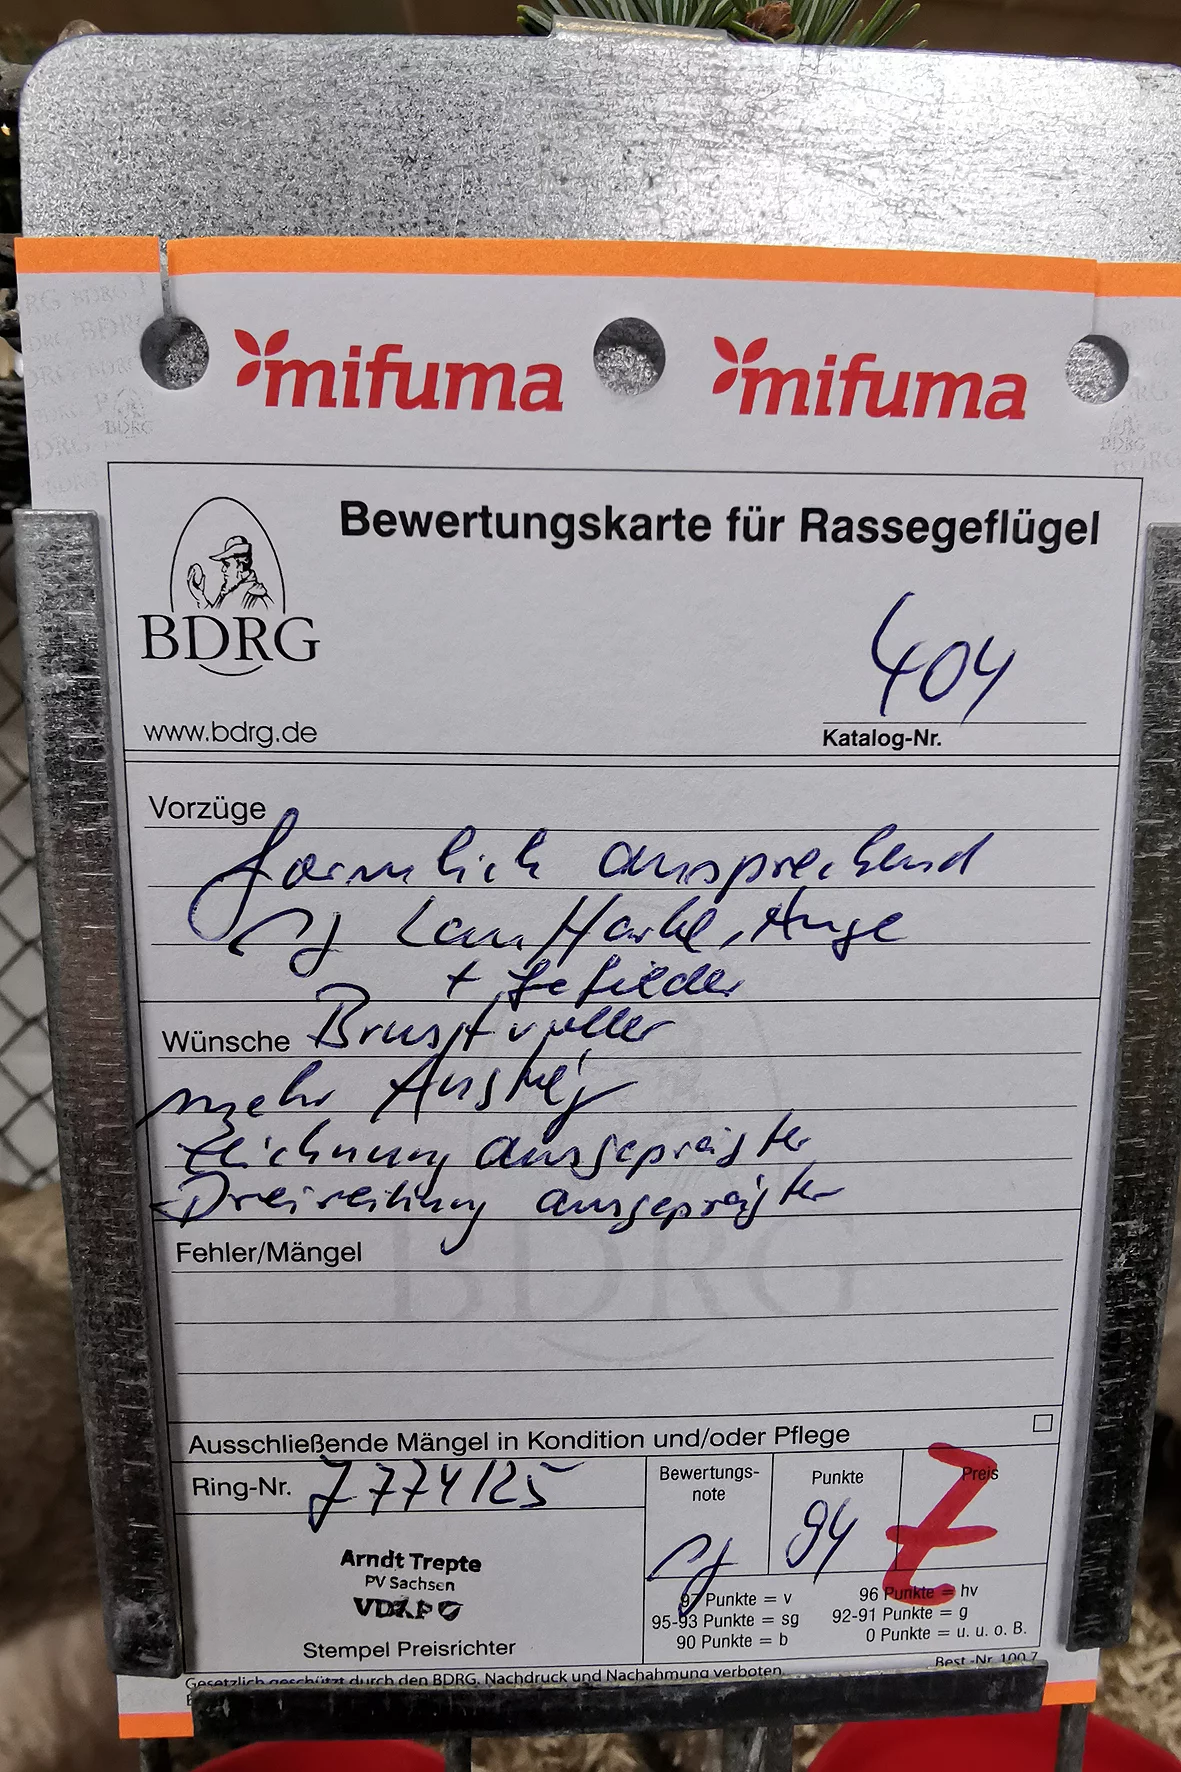 mifuma mifuma
Bewertungskarte für Rassegeflügel
BDRG
404
www.bdrg.de
Katalog-Nr.
Vorzüge
formlich ansprechend
sg Lauffarbe, Auge
+ Gefieder
Wünsche Brust voller
mehr Anstieg
Zeichnung ausgeprägter
Dreireihung ausgeprägter
Fehler/Mängel
BDRG
Ausschließende Mängel in Kondition und/oder Pflege
Ring-Nr. J 774/25
Bewertungs-
note
Punkte
Preis
sg 94 Z
Arndt Trepte
PV Sachsen
Stempel Preisrichter
97 Punkte = v 96 Punkte = hv
95-93 Punkte = sg 92-91 Punkte = g
90 Punkte = b 0 Punkte = u. u. o. B.
Best.-Nr. 100 7
Gesetzlich geschützt durch den BDRG. Nachdruck und Nachahmung verboten.